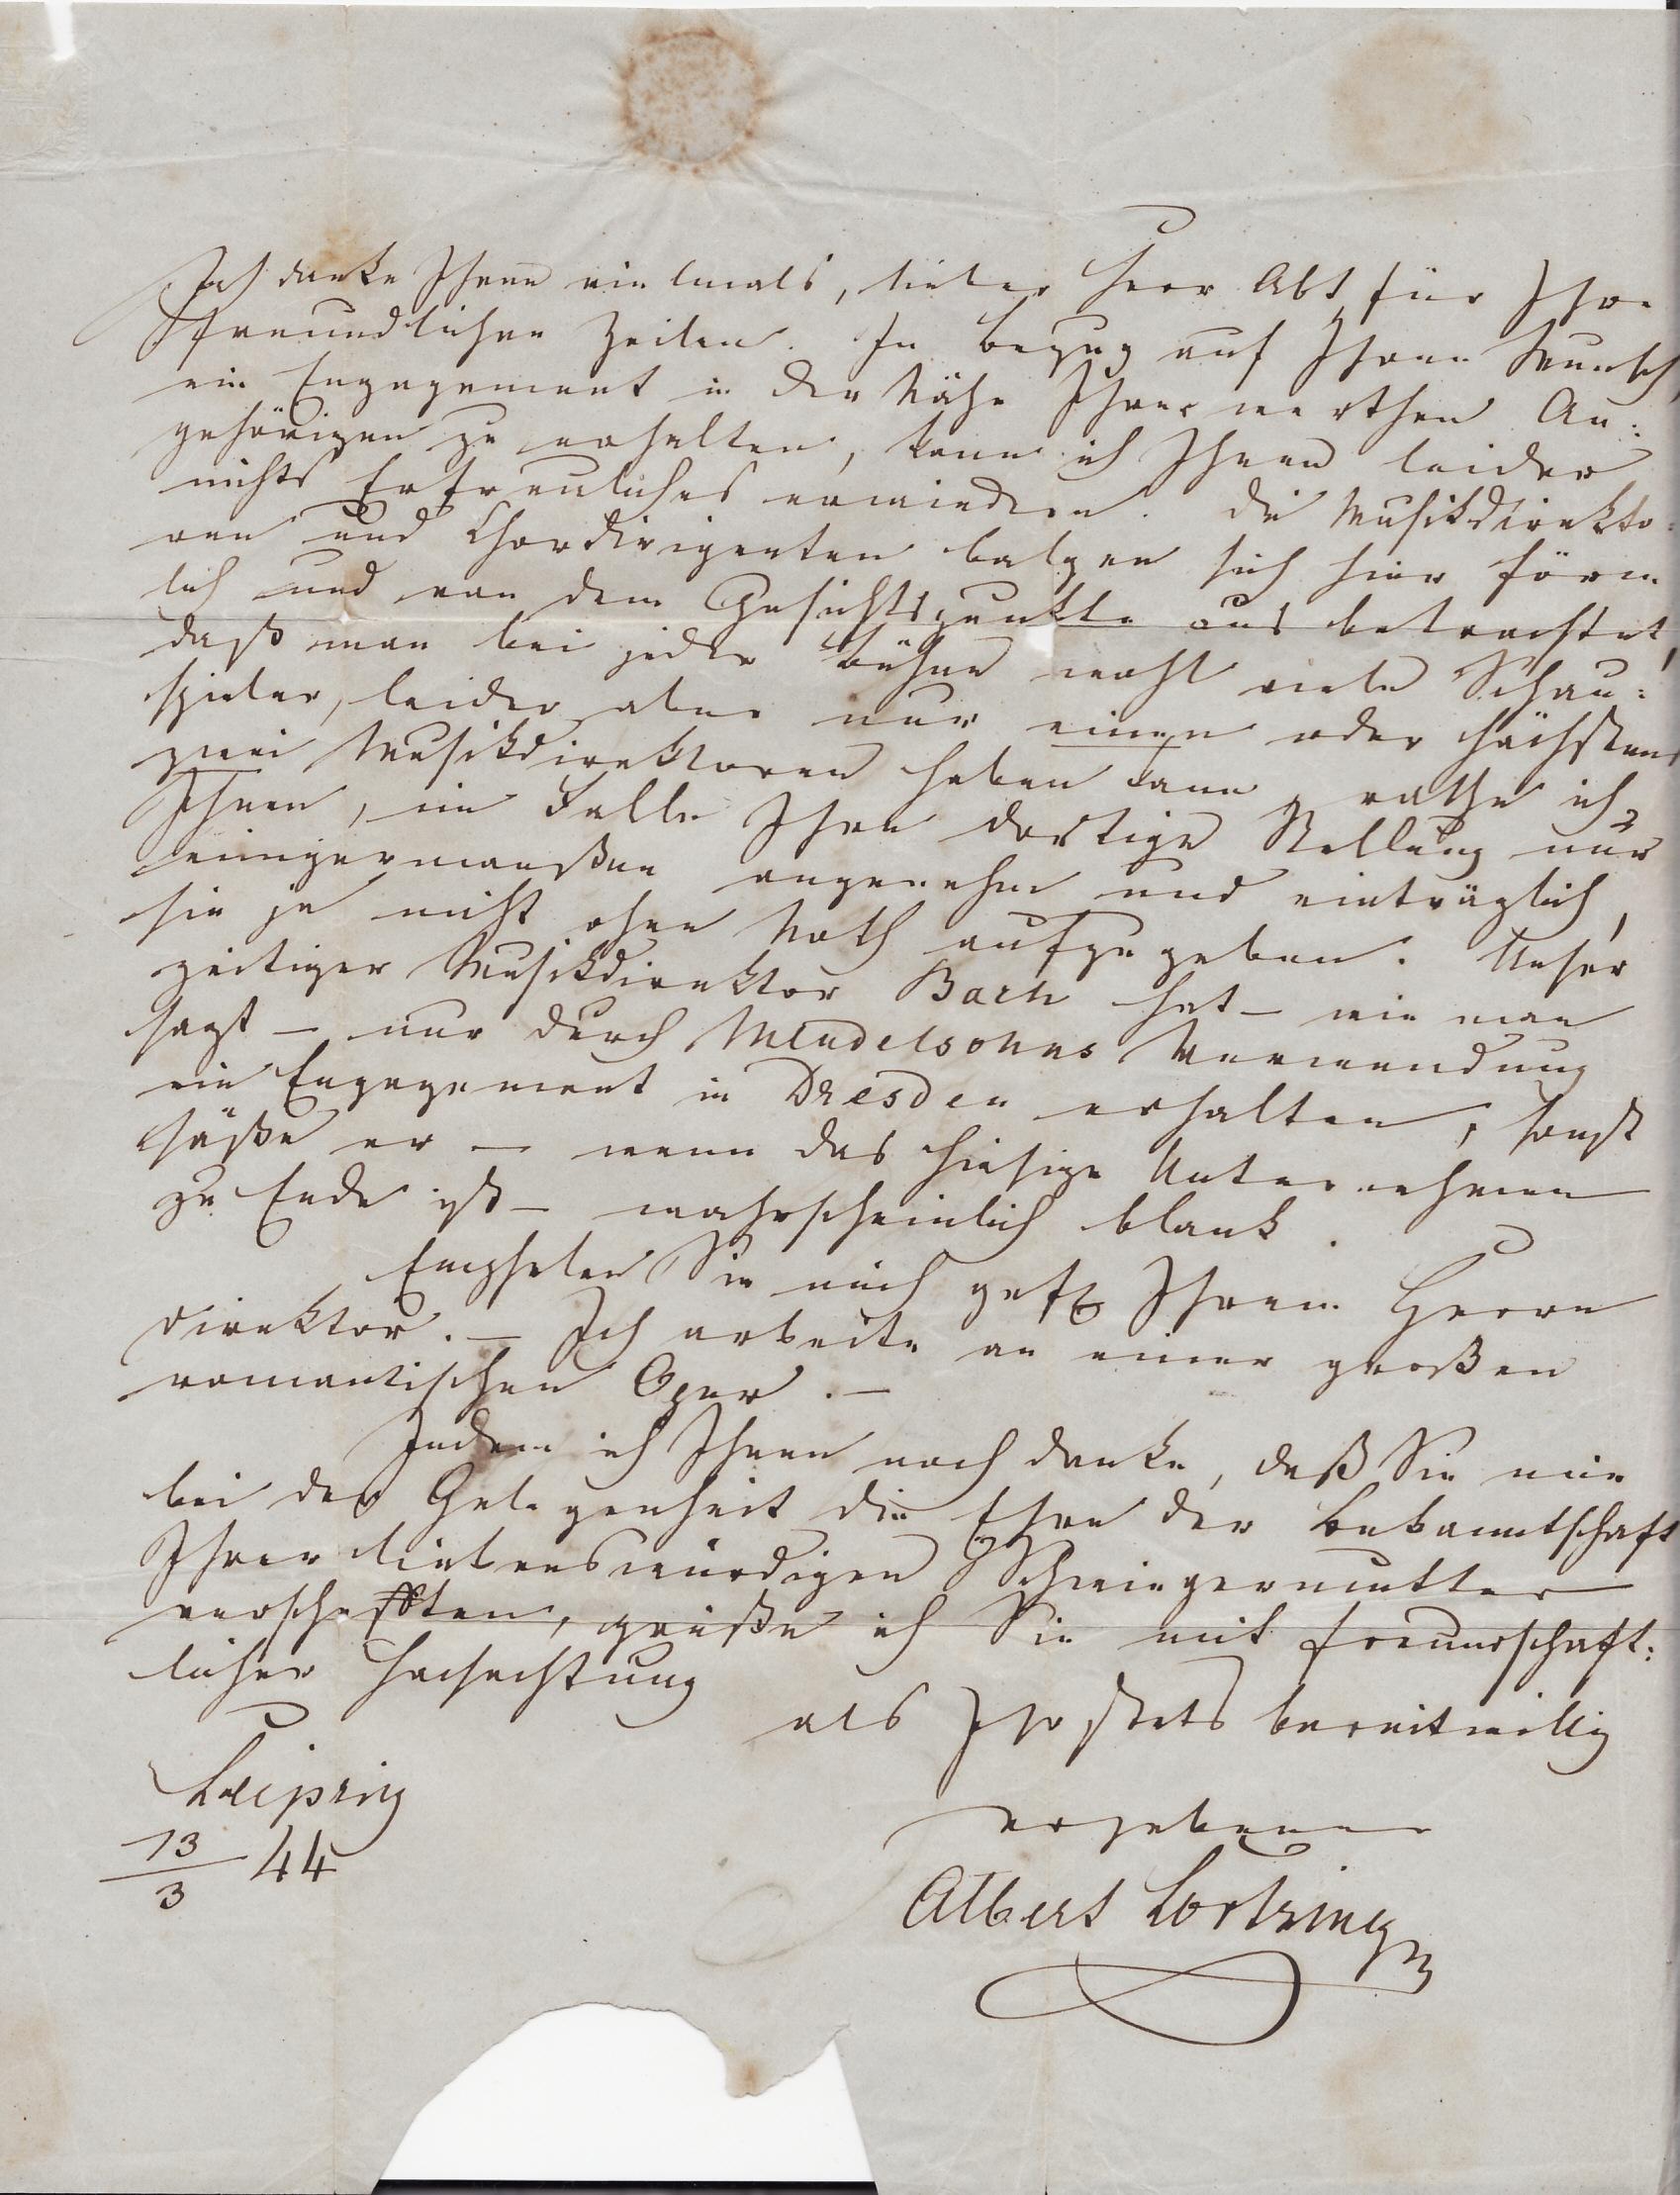 Ich danke Ihnen vielmals, lieber Herr Abt für Ihre
freundlichen Zeilen. In Bezug auf Ihren Wunsch,
ein Engagement in der Nähe Ihrer werthen An:
gehörigen zu erhalten, kann ich Ihnen leider
nichts Erfreuliches erwiedern. Die Musikdirekto:
ren und Chordirigenten balgen sich hier förm
lich und von dem Gesichtspunkte aus betrachtet,
daß man bei jeder Bühne wohl viele Schau:
spieler, leider aber nur einen oder höchstens
zwei Musikdirektoren haben kann, rathe ich
Ihnen, im Falle Ihre dortige Stellung nur
einigermaaßen angenehm und einträglich,
sie ja nicht ohne Noth aufzugeben. Unser
zeitiger Musikdirektor Bach hat – wie man
sagt – nur durch Mendelsohns Verwendung
ein Engagement in Dresden erhalten, sonst
säße er – wenn das hiesige Unternehmen
zu Ende ist – wahrscheinlich blank.
Empfelen Sie mich gefl Ihrem Herrn
Direktor. – Ich arbeite an einer großen
romantischen Oper. –
Indem ich Ihnen noch danke, daß Sie mir
bei der Gelegenheit die Ehre der Bekanntschaft
Ihrer liebenswürdigen Schwiegermutter
verschafften, grüße ich Sie mit freundschaft:
licher Hochachtung
als Ihr stets bereitwillig
ergebener
Leipzig
13/3 44
Albert Lortzing